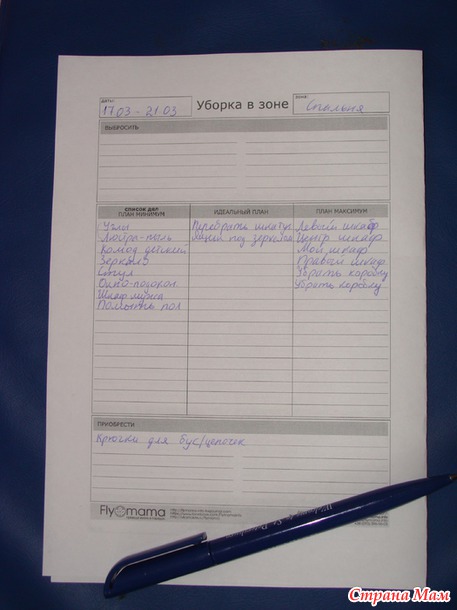 даты:
17.03 - 21.03
Уборка в зоне
зона:
Спальня
ВЫБРОСИТЬ
СПИСОК ДЕЛ
ПЛАН МИНИМУМ
ИДЕАЛЬНЫЙ ПЛАН
ПЛАН МАКСИМУМ
Углы
Перебрать шкатул
Левый шкаф
Люстра-пыль
Ящик под зеркалом
Центр шкаф
Комод детский
Мой шкаф
Зеркало
Правый шкаф
Стул
Убрать коробку
Окно-подокон.
Убрать коробку
Шкаф мужа
Помыть пол
ПРИОБРЕСТИ
Крючки для бус/цепочек
Fly mama
Страна Мам